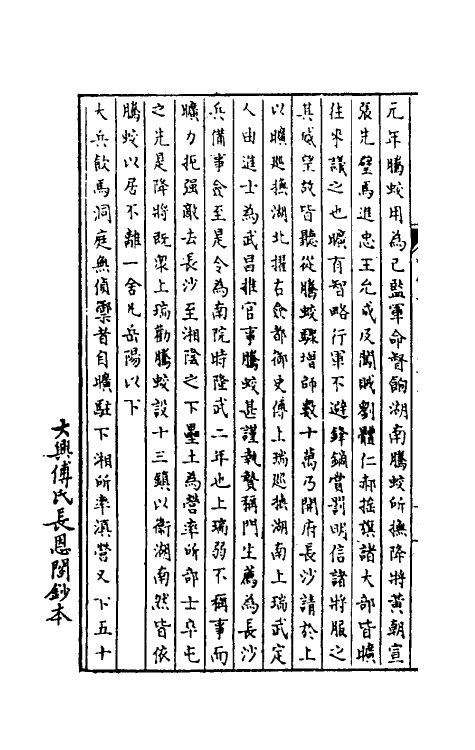 元年騰蛟用為己監軍命督餉湖南騰蛟所撫降將黃朝宣
張先璧馬進忠王允成及闖賊劉體仁郝搖旗諸大部皆曠
往來議之也曠有智略行軍不避鋒鏑賞罰明信諸將服之
其威望故皆聽從騰蛟驟增師數十萬乃開府長沙請於上
以曠廵撫湖北擢右僉都御史傅上瑞廵撫湖南上瑞武定
人由進士為武昌推官事騰蛟甚謹執贄稱門生薦為長沙
兵備事僉至是令為南院時隆武二年也上瑞弱不稱事而
曠力扼强敵去長沙至湘陰之下壘土為營率所部士卒屯
之先是降將既衆上瑞勸騰蛟設十三鎮以衛湖南然皆依
騰蛟以居不離一舍凡岳陽以下
大兵飲馬洞庭無偵禦者自曠駐下湘所率滇營又下五十
大興傅氏長恩閣鈔本